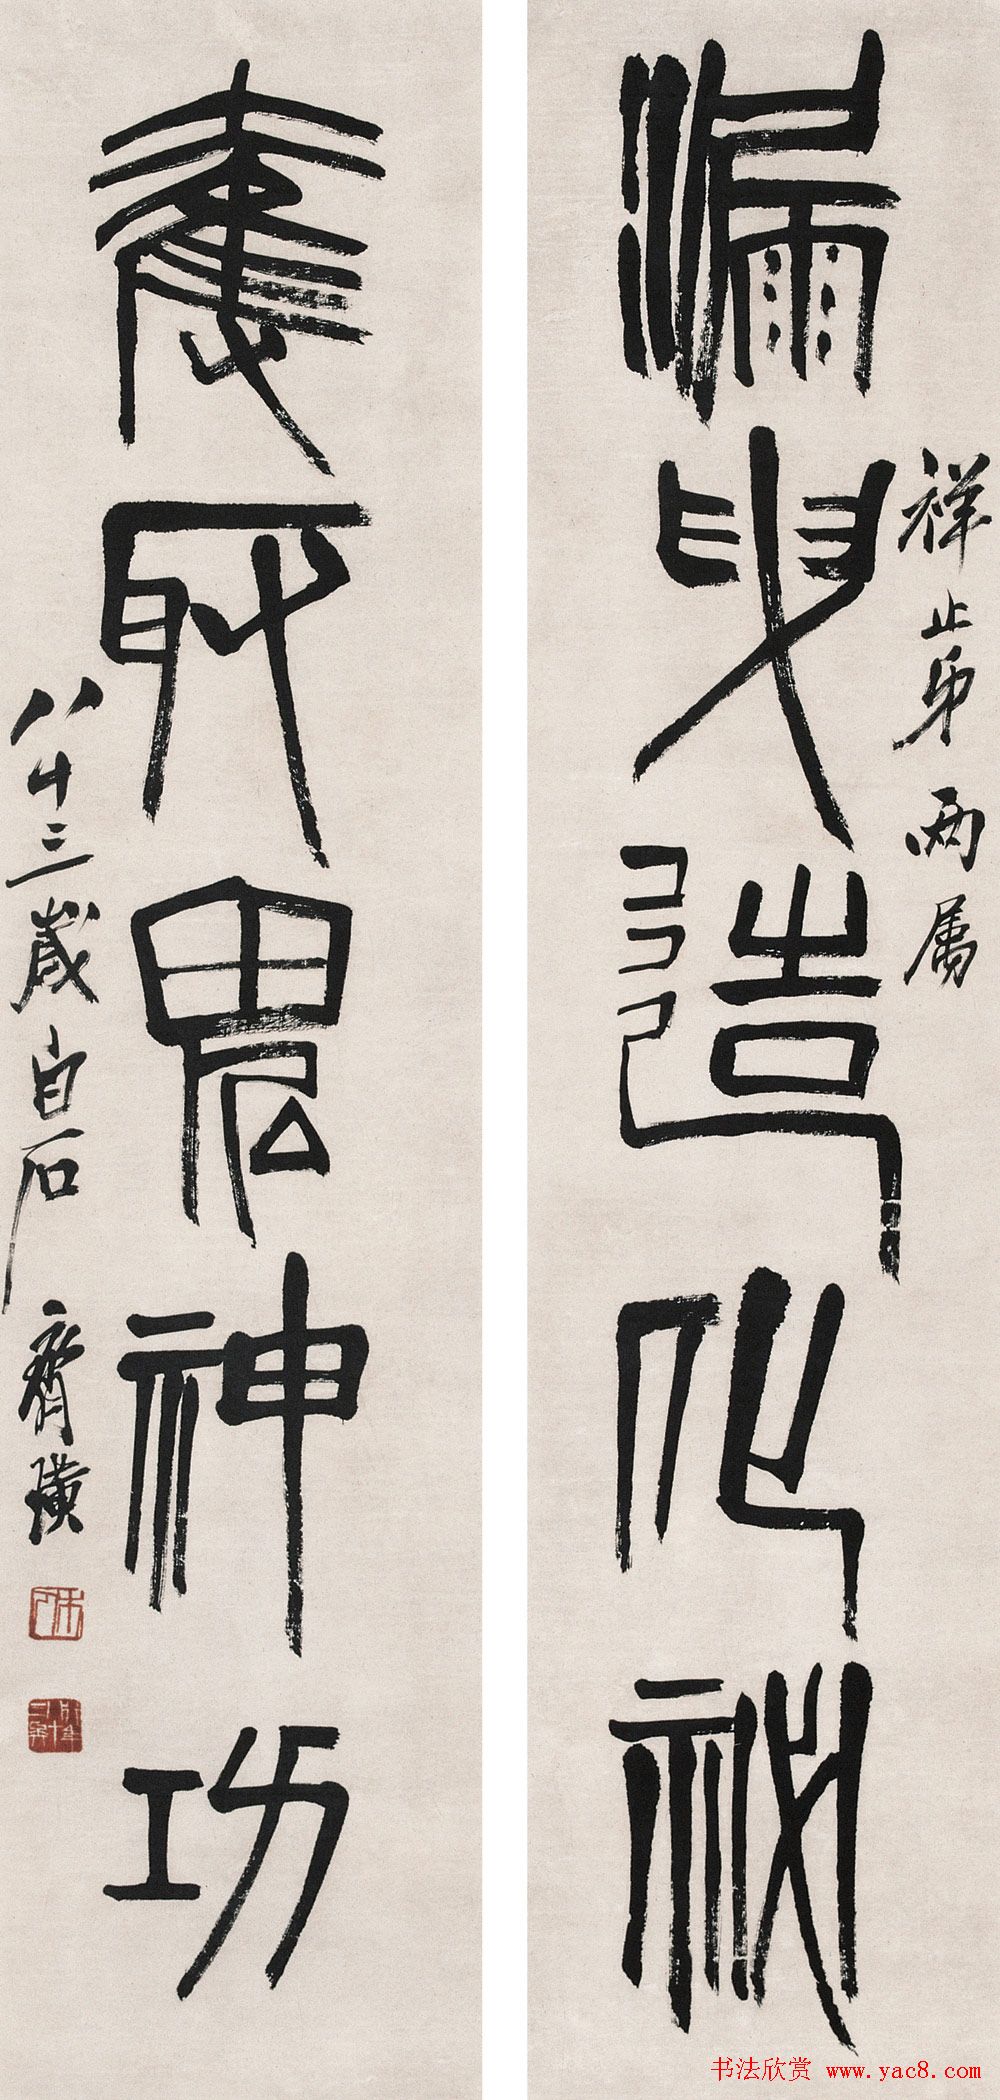 祥止弟两屬
漏曳造化祕
奪取鬼神功
八十三歲白石齊璜
书法欣赏 www.yac8.com